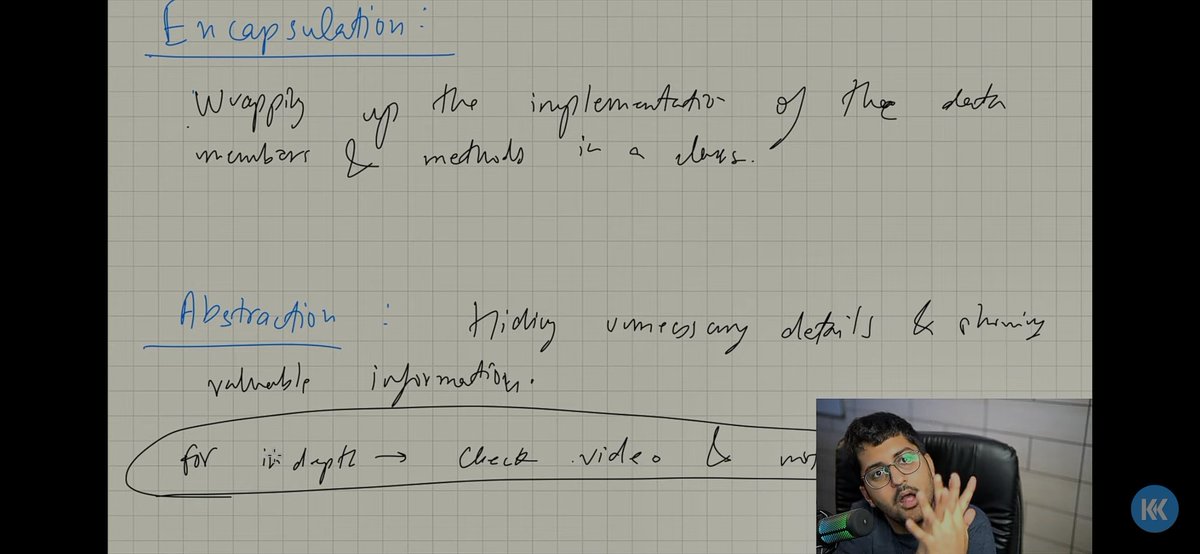 Encapsulation :
Wrapping up the implementation of the data
members & methods in a class.
Abstraction : Hiding unnecessary details & showing
valuable information.
for in depth → Check video &
KK